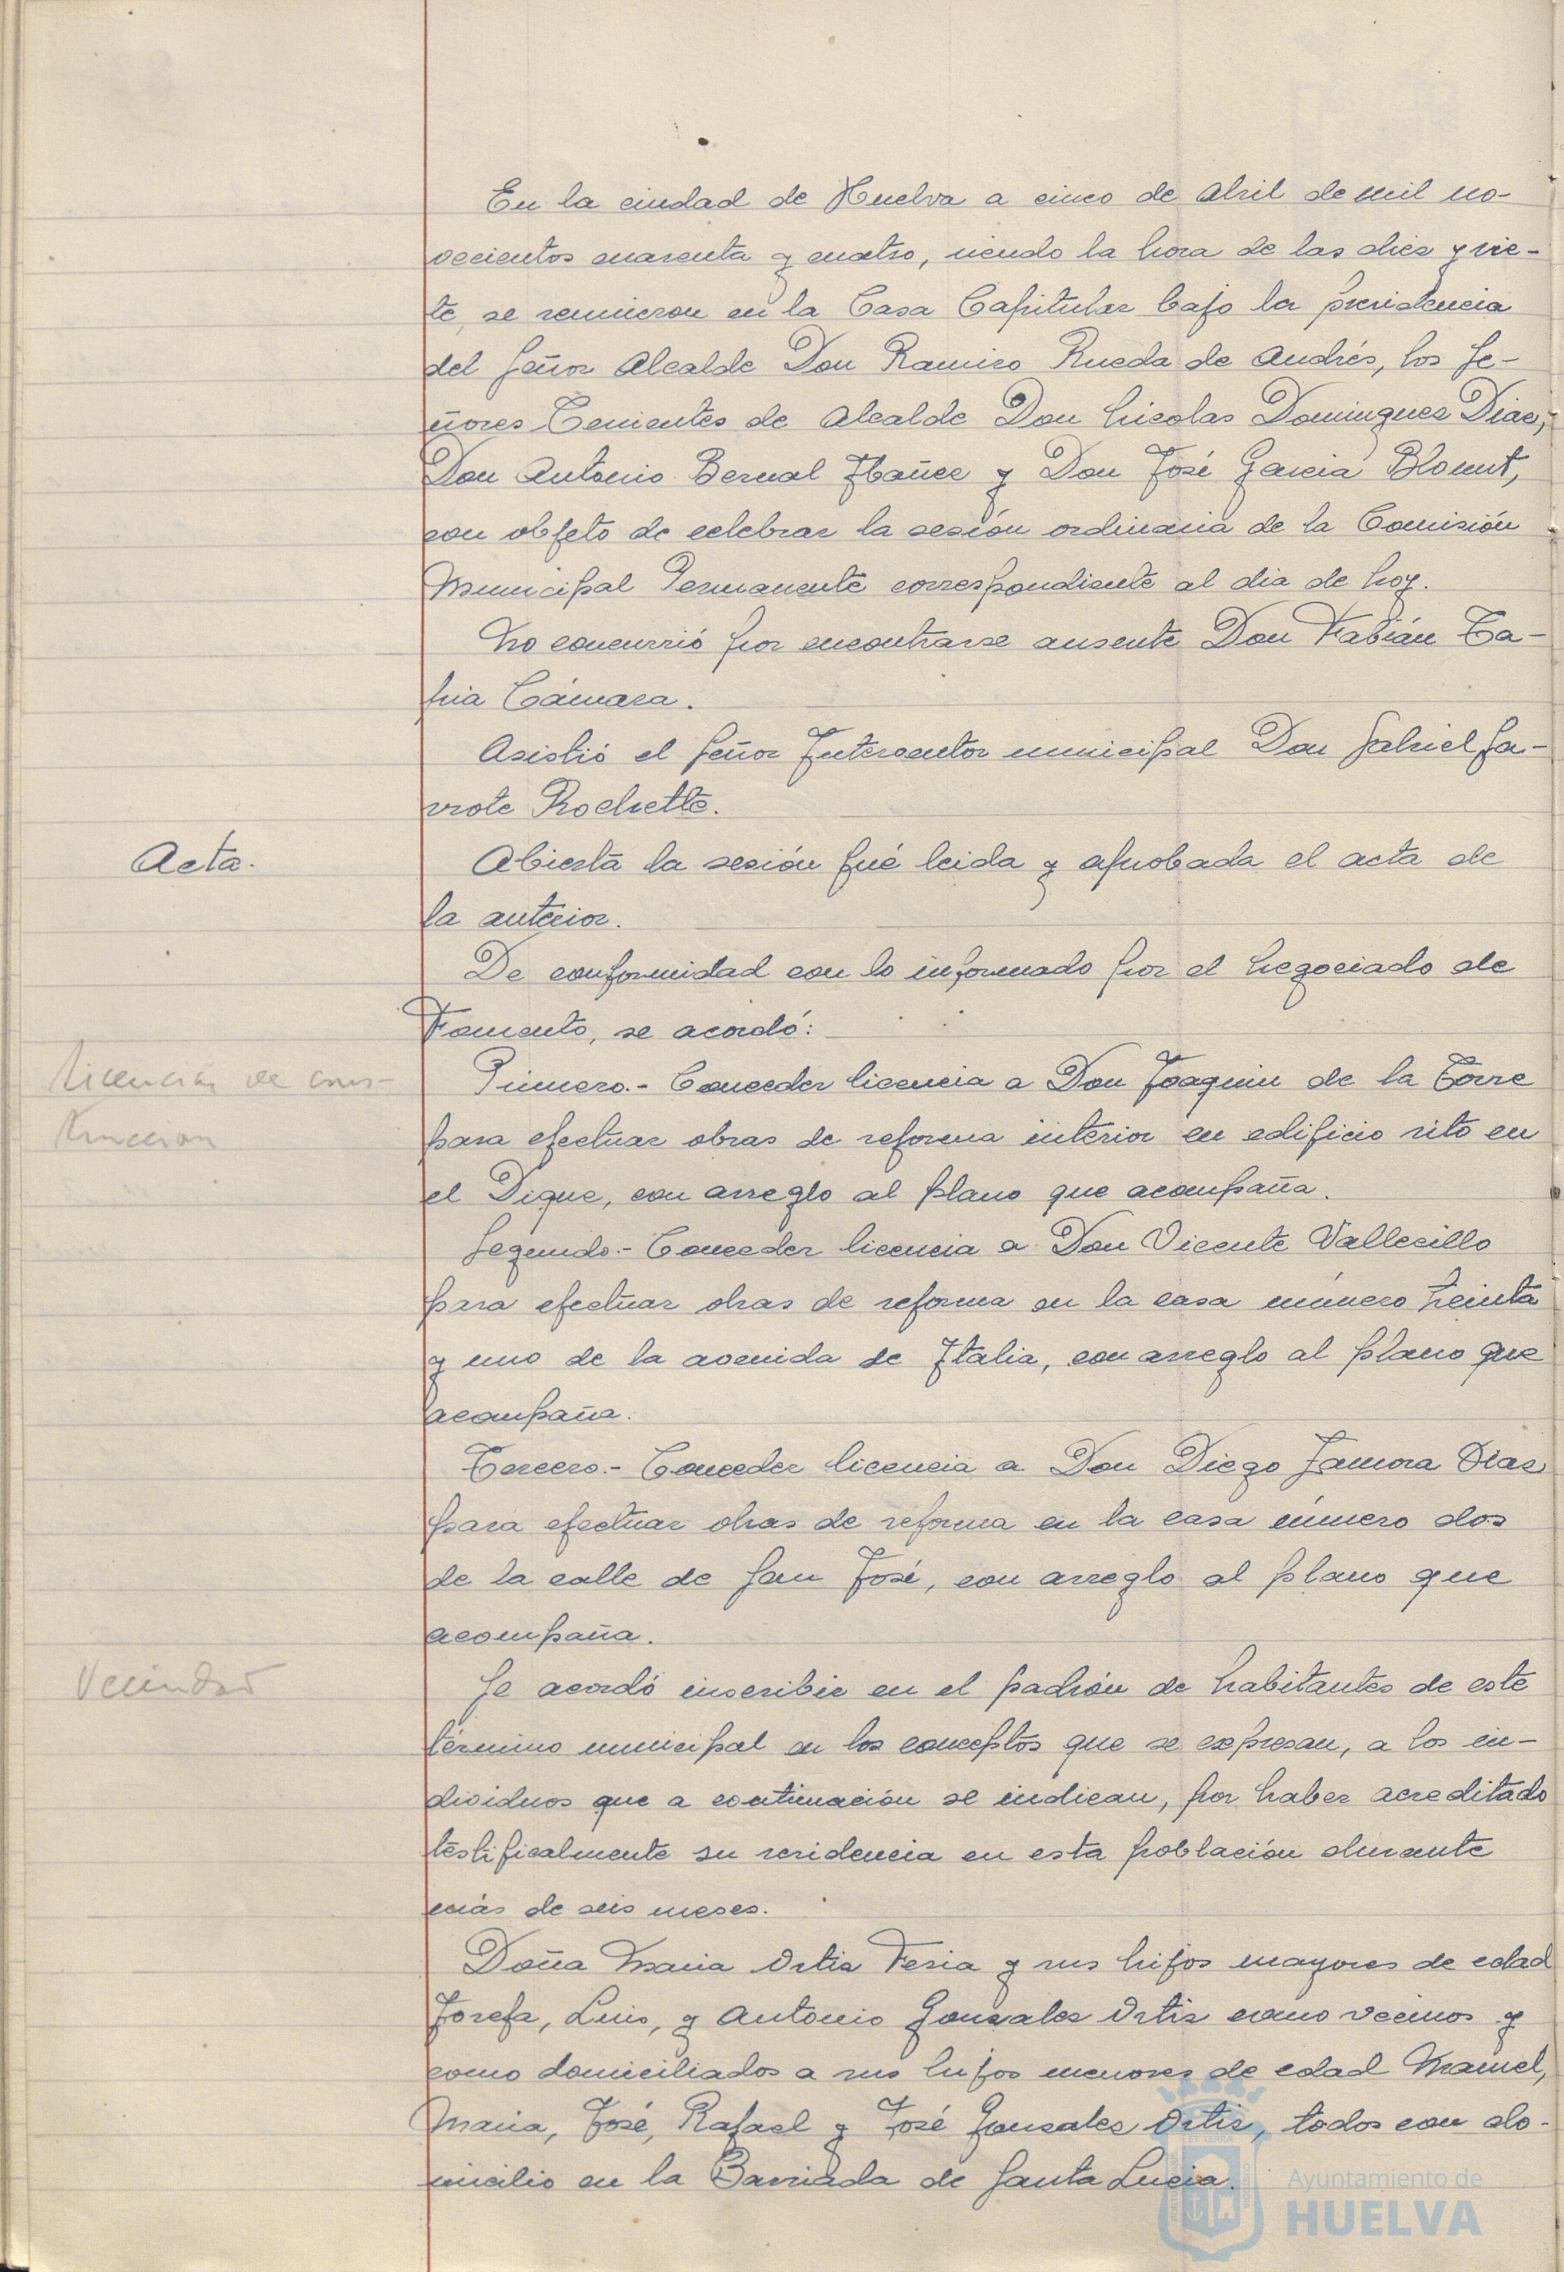 En la ciudad de Huelva a cinco de Abril de mil no-
vecientos cuarenta y cuatro, siendo la hora de las diez y sie-
te, se reunieron en la Casa Capitular bajo la presidencia
del Señor Alcalde Don Ramiro Rueda de Andrés, los Se-
ñores Tenientes de Alcalde Don Nicolas Dominguez Diaz,
Don Antonio Bernal Ibañez y Don José Garcia Blount,
con objeto de celebrar la sesión ordinaria de la Comisión
Municipal Permanente correspondiente al dia de hoy.
No concurrió por encontrarse ausente Don Fabián Ta-
pia Cámara.
Asistió el Señor Interventor municipal Don Gabriel Ga-
vrote Rochette.
Acta.
Abierta la sesión fué leida y aprobada el acta de
la anterior.
De conformidad con lo informado por el Negociado de
Fomento, se acordó:
Licencias de cons-
truccion
Primero.- Conceder licencia a Don Joaquin de la Torre
para efectuar obras de reforma interior en edificio sito en
el Dique, con arreglo al plano que acompaña.
Segundo.- Conceder licencia a Don Vicente Vallecillo
para efectuar obras de reforma en la casa número treinta
y uno de la avenida de Italia, con arreglo al plano que
acompaña.
Tercero.- Conceder licencia a Don Diego Zamora Diaz
para efectuar obras de reforma en la casa número dos
de la calle de San José, con arreglo al plano que
acompaña.
Vecindad
Se acordó inscribir en el padrón de habitantes de este
término municipal en los conceptos que se expresan, a los in-
dividuos que a continuación se indican, por haber acreditado
testificalmente su residencia en esta población durante
más de seis meses.
Doña Maria Ortiz Feria y sus hijos mayores de edad
Josefa, Luis, y Antonio Gonzalez Ortiz como vecinos y
como domiciliados a sus hijos menores de edad Manuel,
Maria, José, Rafael y José Gonzalez Ortiz, todos con do-
micilio en la Barriada de Santa Lucia.
Ayuntamiento de
HUELVA